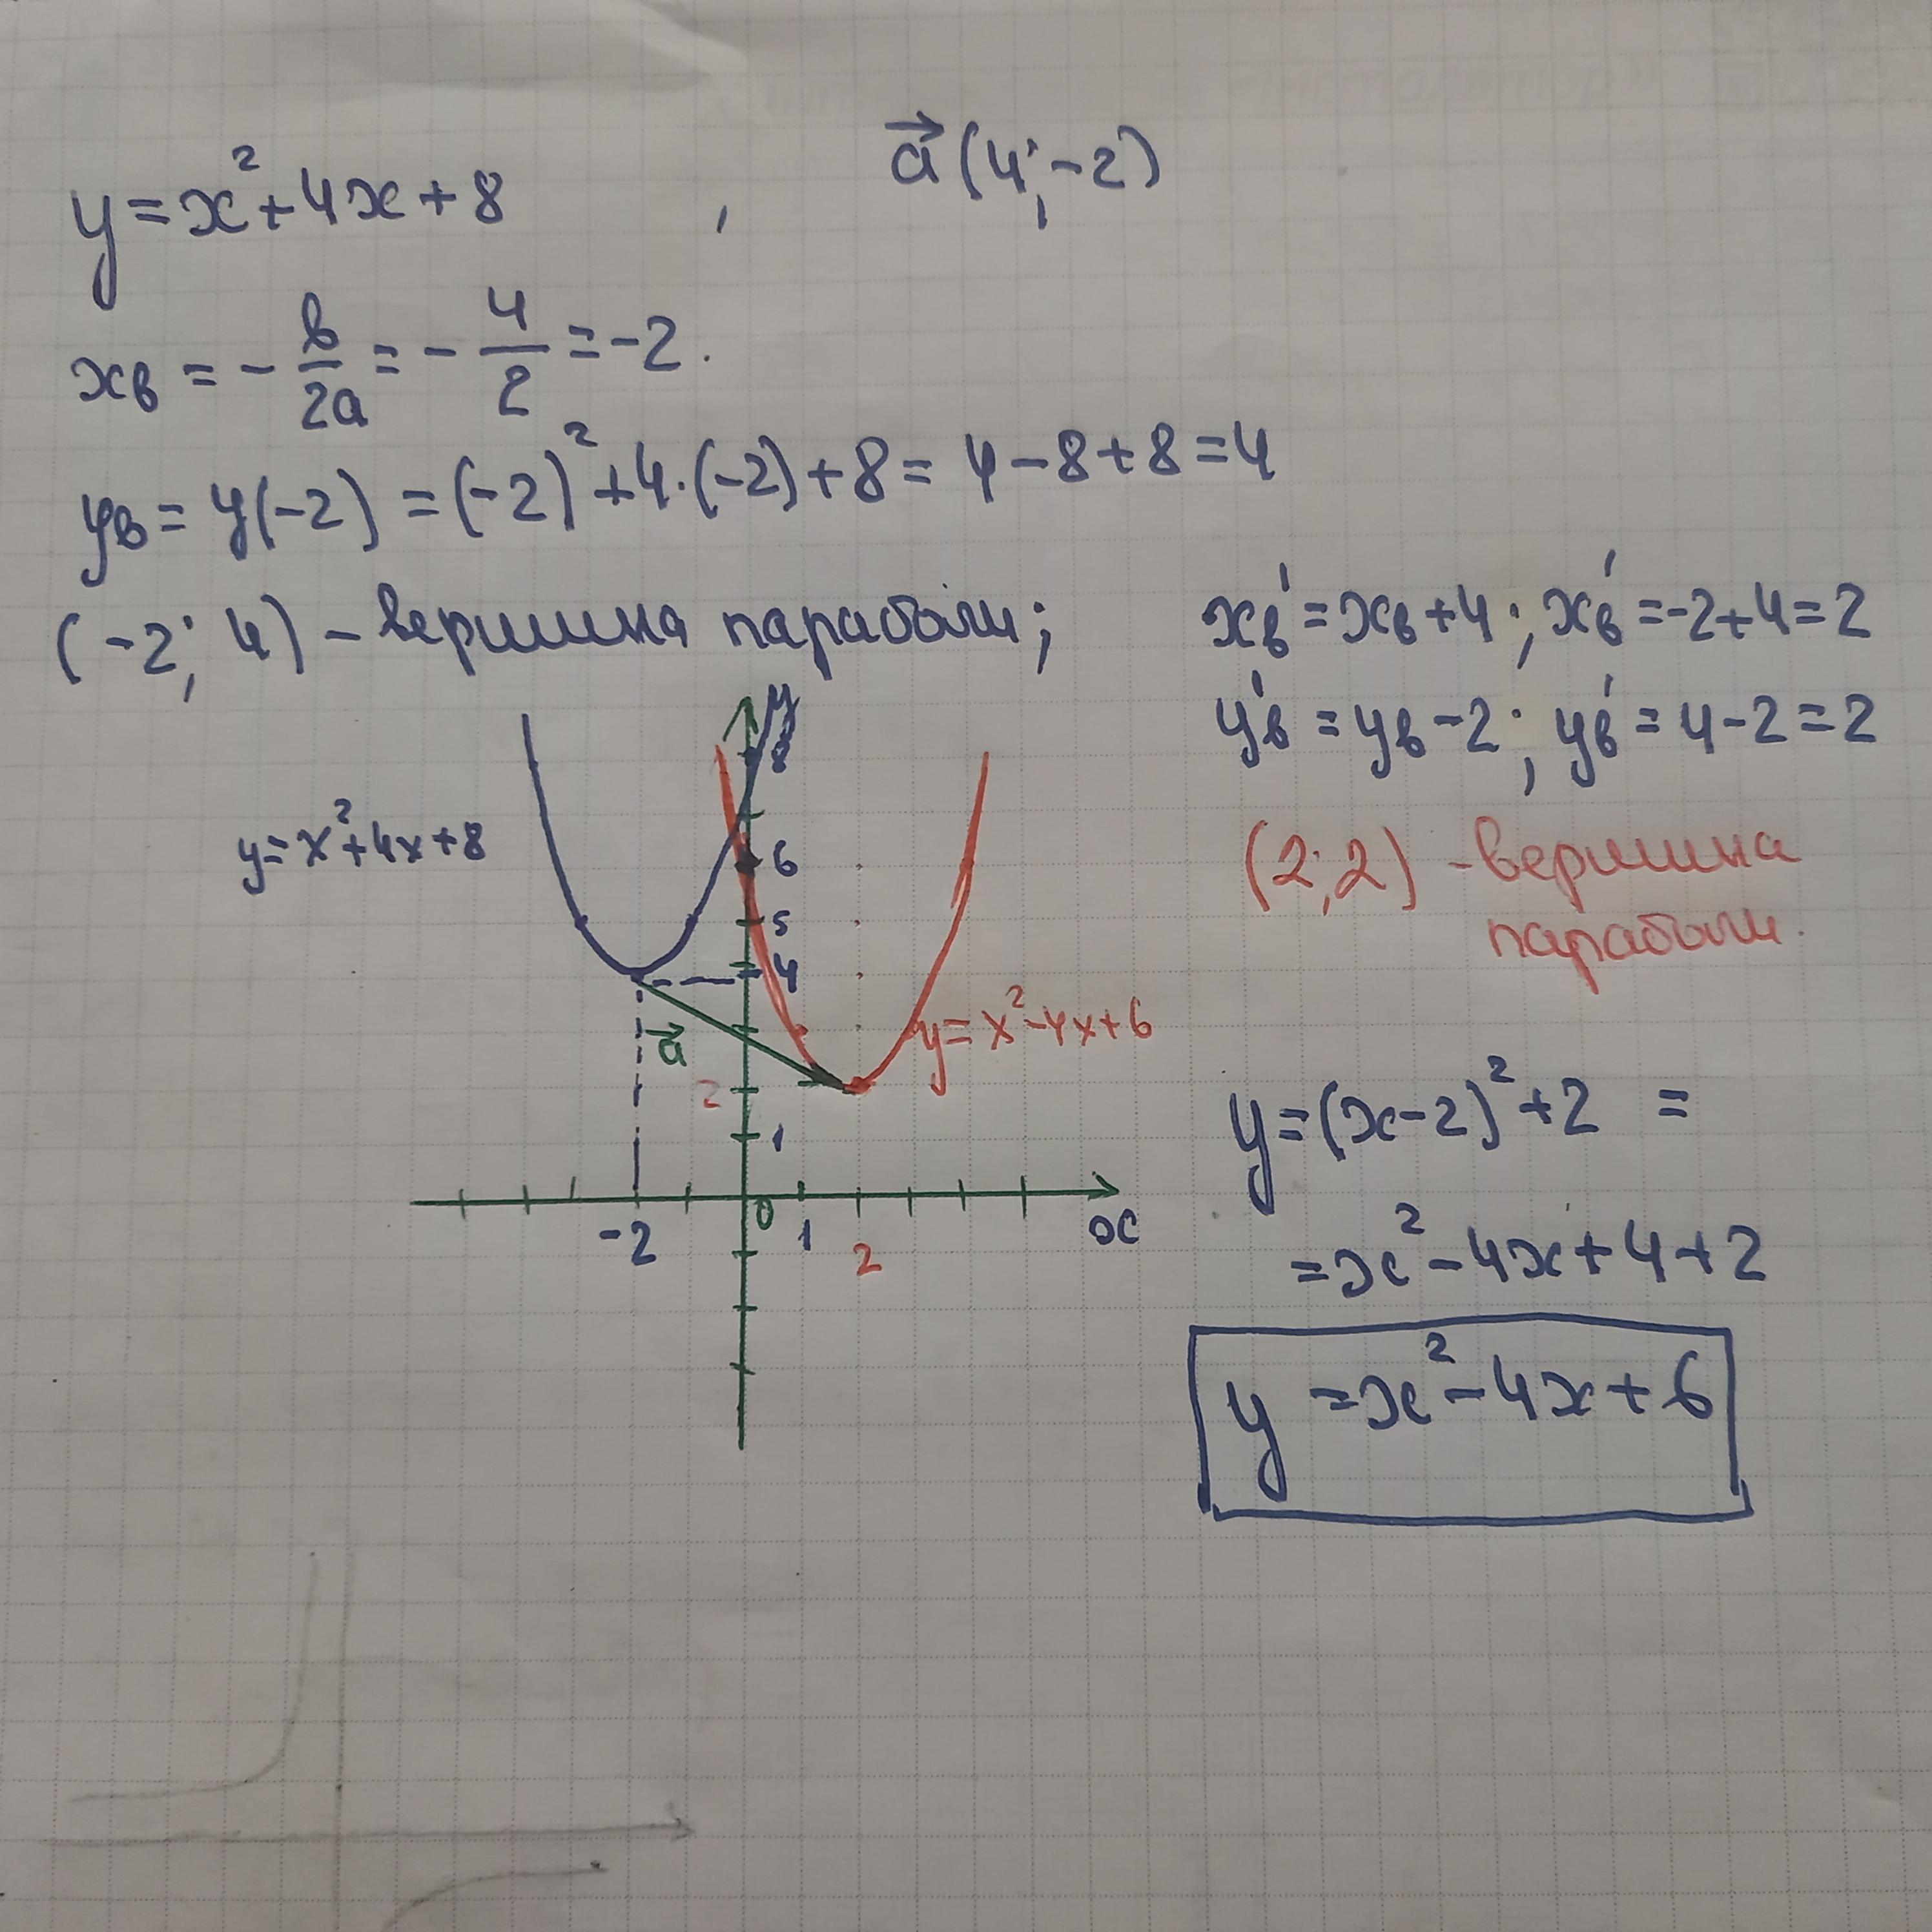 y = x² + 4x + 8 , a⃗ (4; -2)
xв = - в/2a = - 4/2 = -2.
yв = y(-2) = (-2)² + 4·(-2) + 8 = 4 - 8 + 8 = 4
(-2; 4) - вершина параболи;
xв' = xв + 4; xв' = -2 + 4 = 2
yв' = yв - 2; yв' = 4 - 2 = 2
(2; 2) - вершина
параболи.
y
8
y = x² + 4x + 8
6
5
4
a⃗
y = x² - 4x + 6
2
1
-2 0 1 2 x
y = (x - 2)² + 2 =
= x² - 4x + 4 + 2
y = x² - 4x + 6